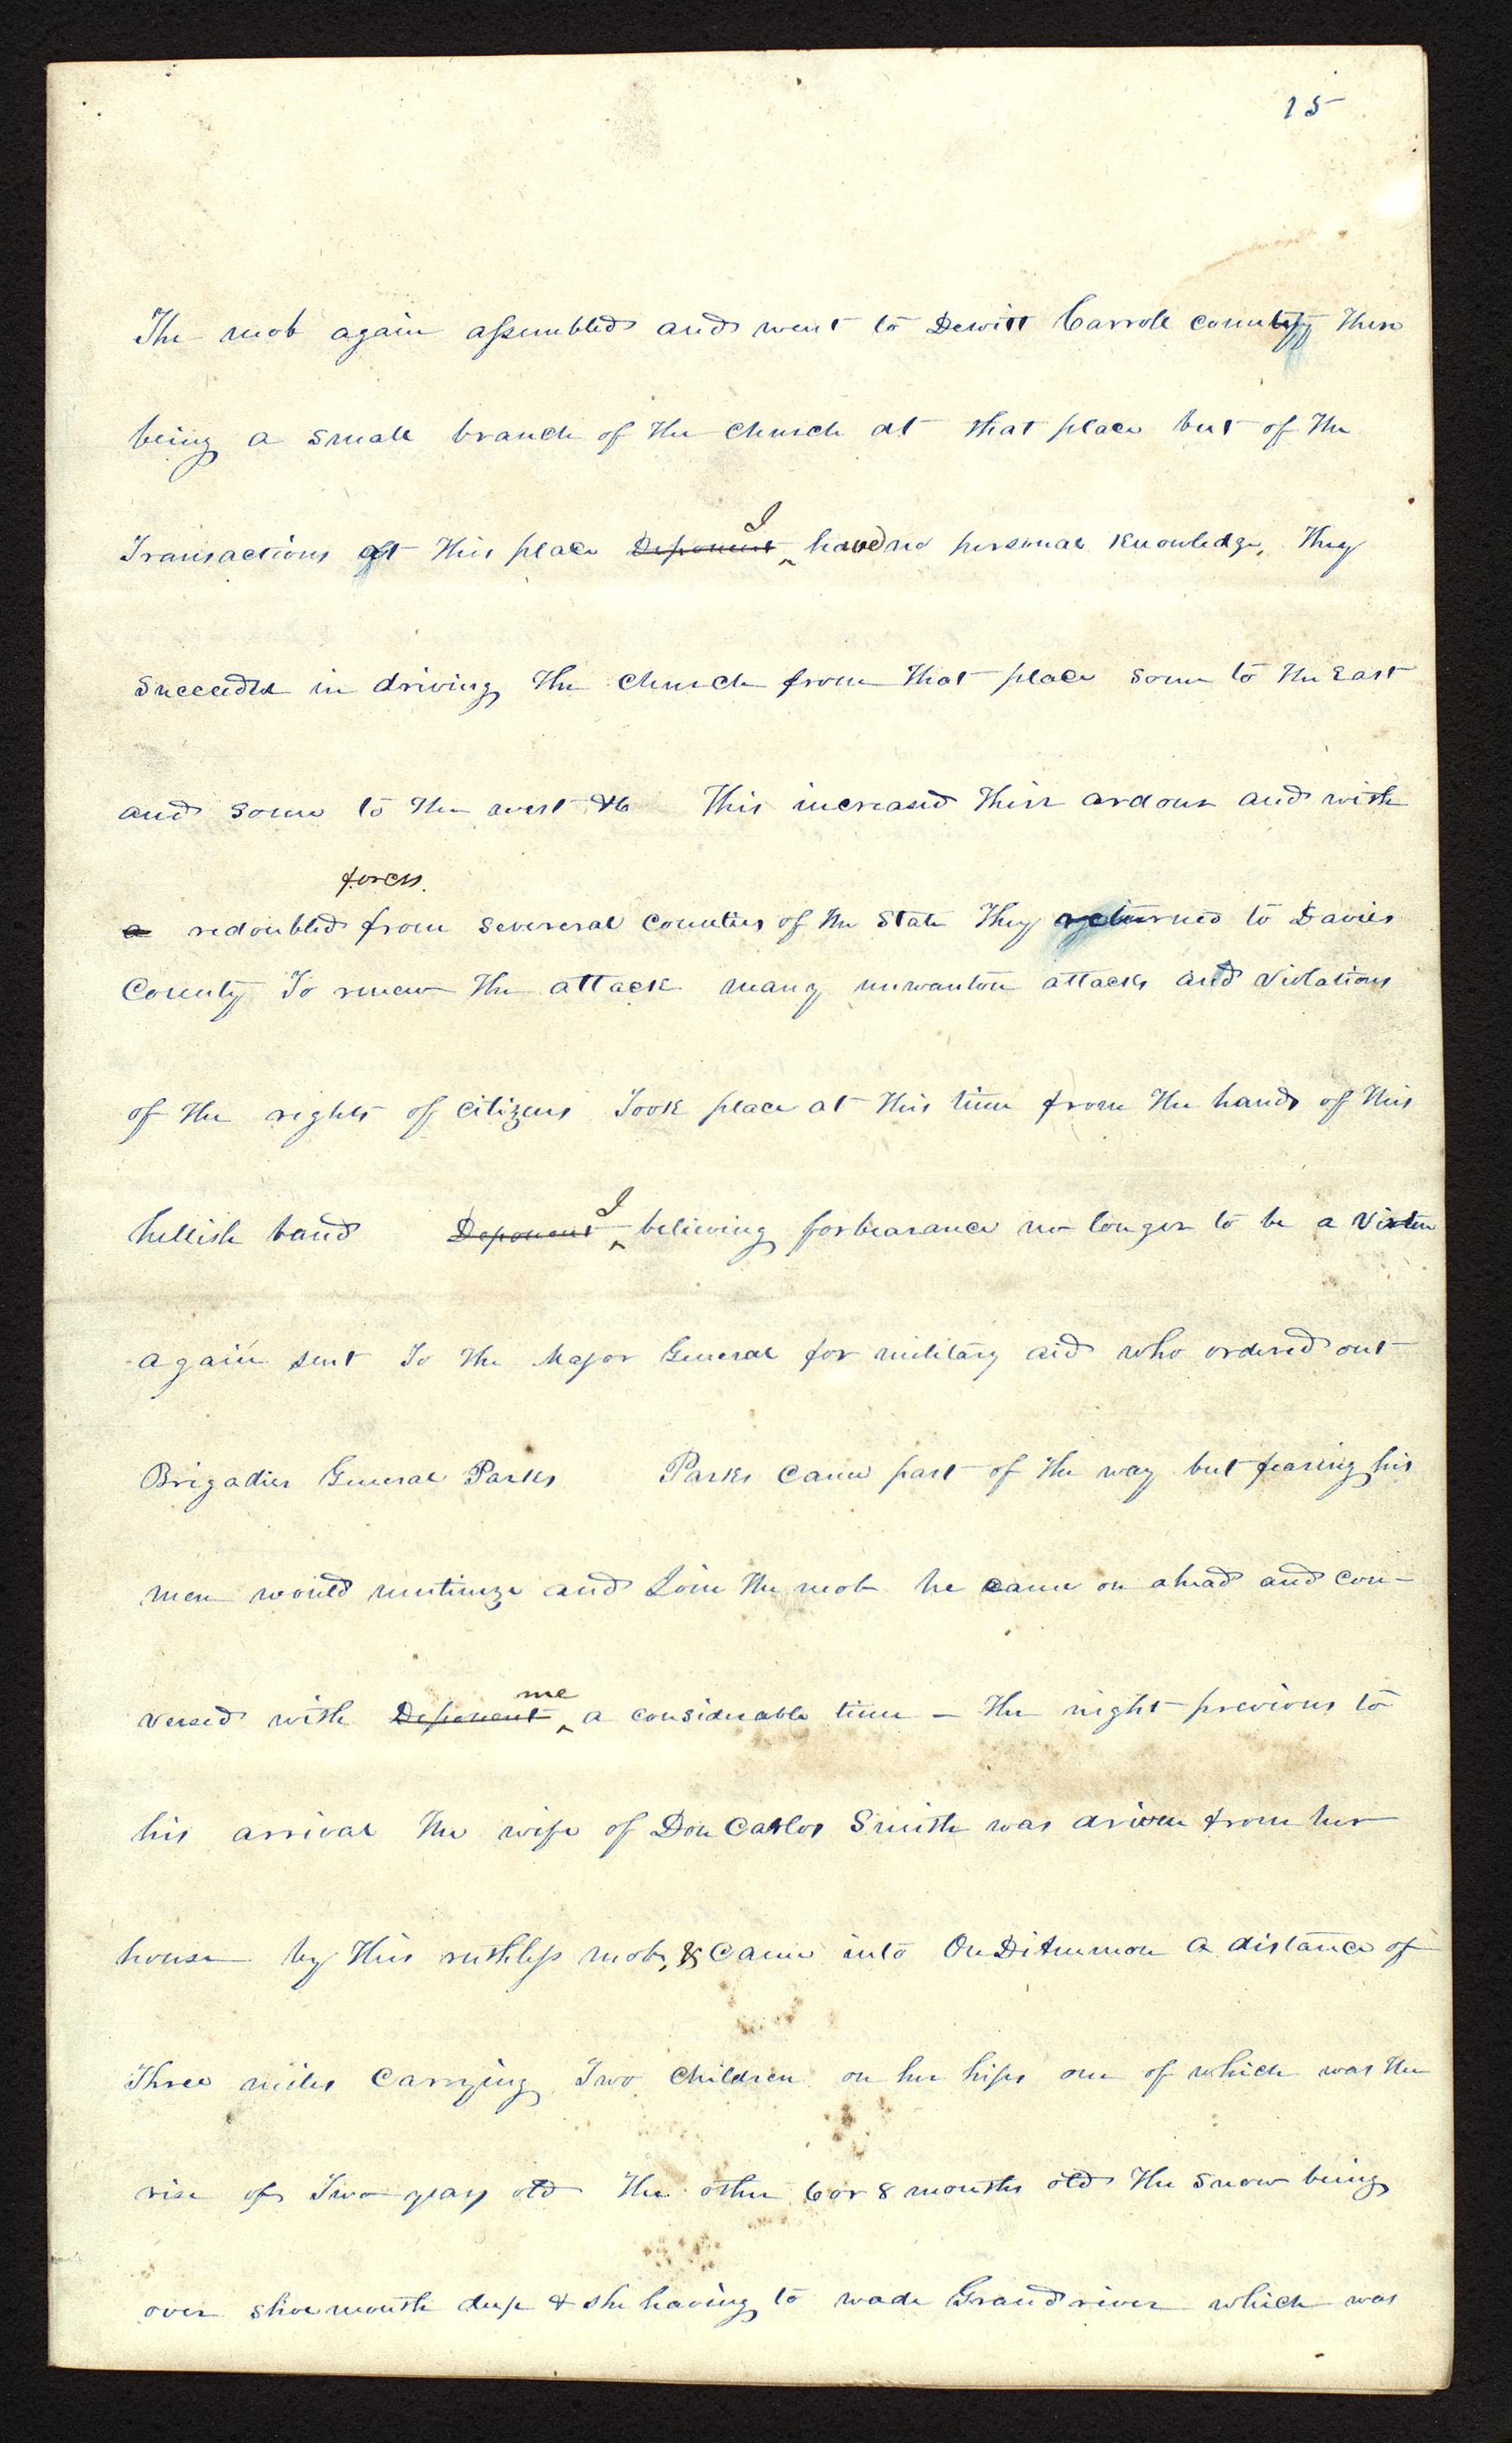 15
The mob again assembled and went to Dewitt Carroll county there
being a small branch of the church at that place but of the
I
Transactions at this place Deponent ^ have no personal knowledge, They
Succeeded in driving the church from that place some to the East
and some to the west &c This increased their ardour and with
forces.
a redoubled from severeral Counties of the State They returned to Davies
County To renew the attack many unwanton attacks and violations
of the rights of citizens Took place at this time from the hands of this
I
hellish band Deponent ^ believing forbearance no longer to be a virtue
again sent To the Major General for military aid who ordered out
Brigadier General Parks Parks came part of the way but fearing his
men would mutinize and Join the mob he came on ahead and con-
me
versed with Deponent ^ a considerable time – The night previous to
his arrival the wife of Don Carlos Smith was driven from her
house by this ruthless mob, & came into OnDiAmmon a distance of
Three miles Carrying Two Children on her hips one of which was the
rise of Two years old the other 6 or 8 months old The snow being
over shoemouth deep & she having to wade Grand river which was